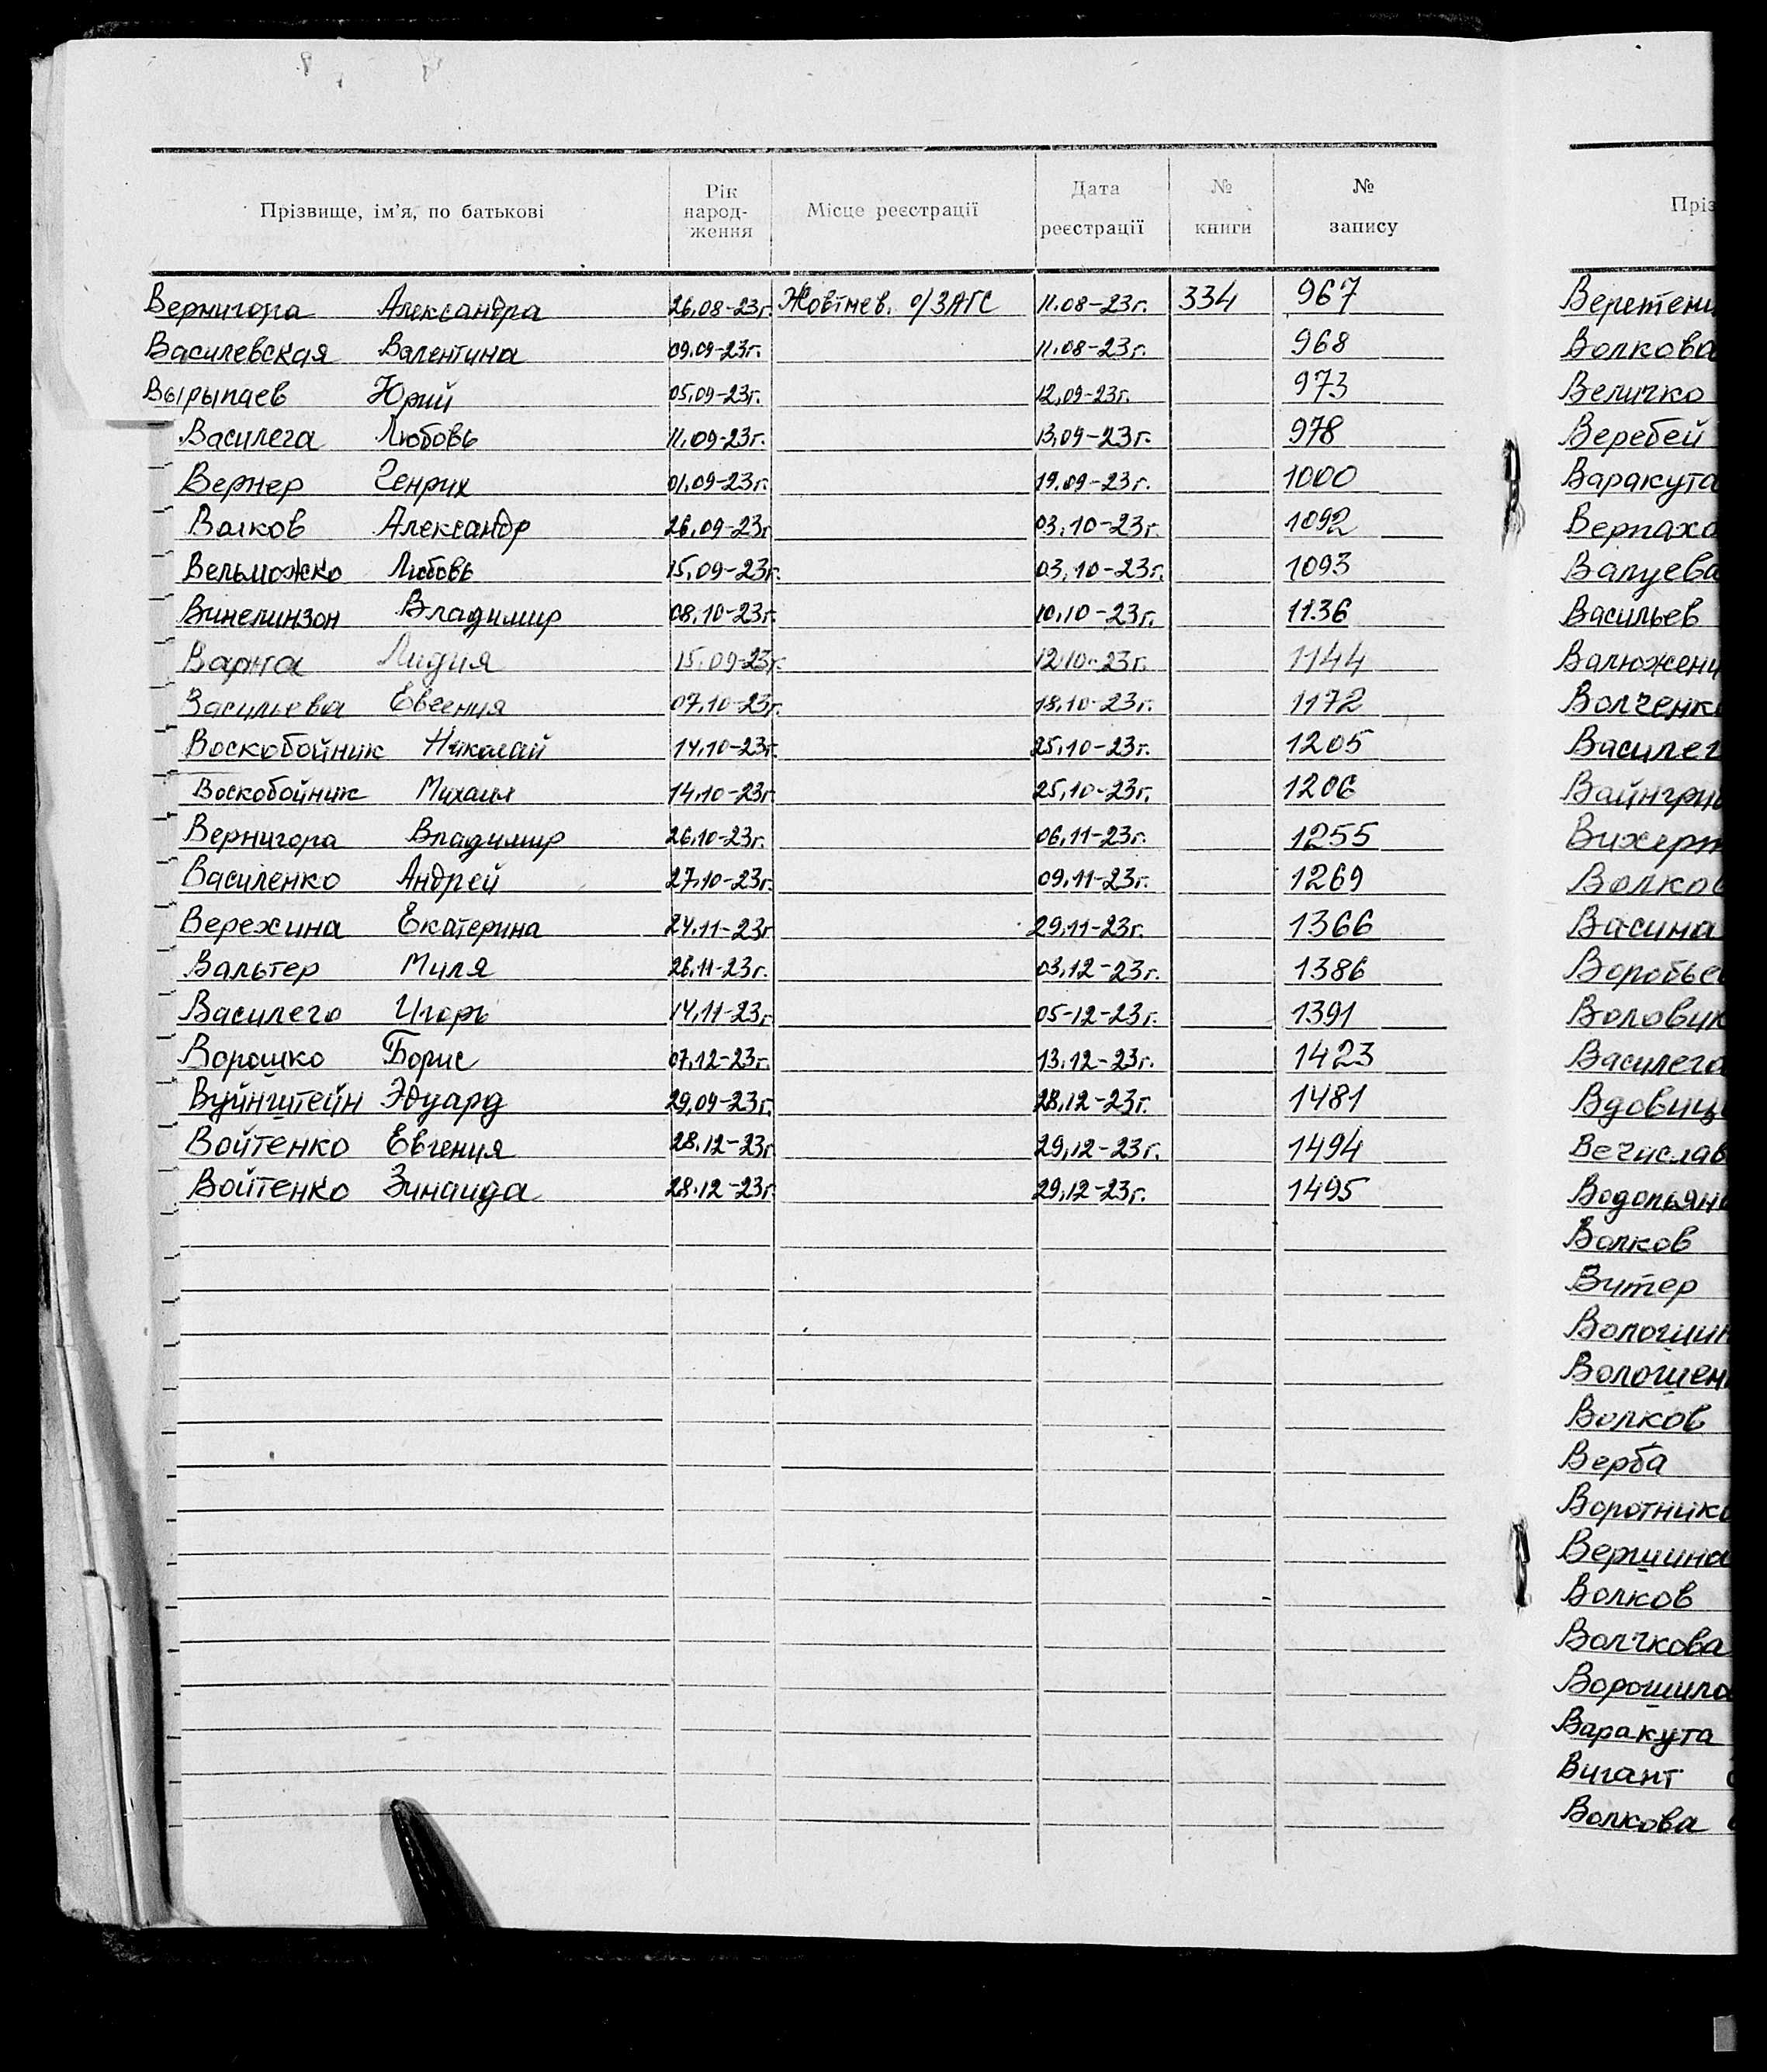 Прізвище, ім'я, по батькові Рік народ-ження Місце реєстрації Дата реєстрації № книги № запису
Вернигора Александра 26.08-23г. Жовтнев. о/ЗАГС 11.08-23г. 334 967
Василевская Валентина 09.09-23г. 11.08-23г. 968
Вырыпаев Юрий 05.09-23г. 12.09-23г. 973
Василега Любовь 11.09-23г. 13.09-23г. 978
Вернер Генрих 01.09-23г. 19.09-23г. 1000
Волков Александр 26.09-23г 03.10-23г. 1092
Вельможко Любовь 15.09-23г. 03.10-23г. 1093
Винелинзон Владимир 08.10-23г. 10.10-23г. 1136
Варна Лидия 15.09-23г. 12.10-23г. 1144
Васильева Евгения 07.10-23г. 18.10-23г. 1172
Воскобойник Николай 14.10-23г. 25.10-23г. 1205
Воскобойник Михаил 14.10-23г. 25.10-23г. 1206
Вернигора Владимир 26.10-23г. 06.11-23г. 1255
Василенко Андрей 27.10-23г. 09.11-23г. 1269
Вережина Екатерина 24.11-23г 29.11-23г. 1366
Вальтер Миля 26.11-23г. 03.12-23г. 1386
Василего Игорь 14.11-23г 05-12-23г. 1391
Ворошко Борис 07.12-23г. 13.12-23г. 1423
Вуйнштейн Эдуард 29.09-23г. 28.12-23г. 1481
Войтенко Евгения 28.12-23г 29.12-23г. 1494
Войтенко Зинаида 28.12-23г 29.12-23г. 1495
Пріз
Веретени
Волкова
Величко
Веребей
Варакута
Верпахо
Валуева
Васильев
Валюжени
Волченко
Василег
Вайнгри
Вихерт
Волков
Васина
Воробьев
Воловик
Василега
Вдовиц
Вечислав
Водопьян
Волков
Витер
Волошин
Волошен
Волков
Верба
Воротнико
Вершина
Волков
Волчкова
Ворошило
Варакута
Вигант
Волкова